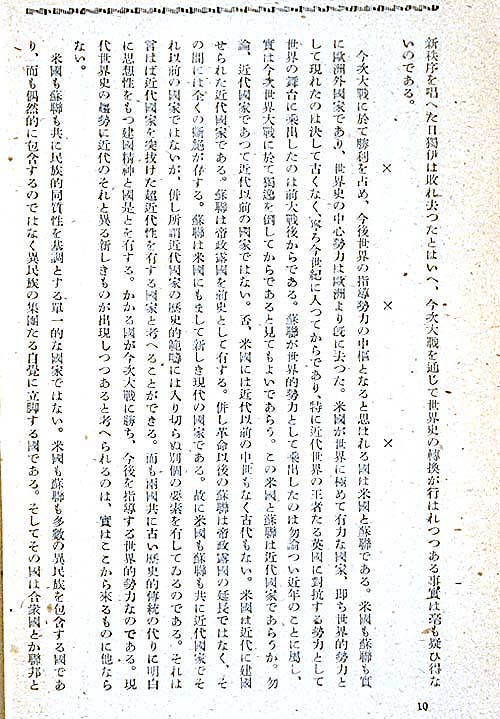 新秩序を唱へた日獨伊は敗れ去つたとはいへ、今次大戰を通じて世界史の轉換が行はれつつある事實は毫も疑ひ得な
いのである。
× × ×
今次大戰に於て勝利を占め、今後世界の指導勢力の中樞となると思はれる國は米國と蘇聯である。米國も蘇聯も實
に歐洲外國家であり、世界史の中心勢力は歐洲より旣に去つた。米國が世界に極めて有力な國家、卽ち世界的勢力と
して現れたのは決して古くなく、寧ろ今世紀に入つてからであり、特に近代世界の王者たる英國に對抗する勢力として
世界の舞台に乘出したのは前大戰後からである。蘇聯が世界的勢力として乘出したのは勿論つい近年のことに屬し、
實は今次世界大戰に於て獨逸を倒してからであると見てもよいであらう。この米國と蘇聯は近代國家であらうか。勿
論、近代國家であつて近代以前の國家ではない。否、米國には近代以前の中世もなく古代もない。米國は近代に建國
せられた近代國家である。蘇聯は帝政露國を前史として有する。併し革命以後の蘇聯は帝政露國の延長ではなく、そ
の間には全くの斷絕が存する。蘇聯は米國にもまして新しき現代の國家である。故に米國も蘇聯も共に近代國家でそ
れ以前の國家ではないが、併し所謂近代國家の歷史的範疇には入り切らぬ別個の要素を有してゐるのである。それは
言はば近代國家を突拔けた超近代性を有する國家と考へることができる。而も兩國共に古い歷史的傳統の代りに明白
に思想性をもつ建國精神と國是とを有する。かかる國が今次大戰に勝ち、今後を指導する世界的勢力なのである。現
代世界史の趨勢に近代のそれと異る新しきものが出現しつつあると考へられるのは、實はここから來るものに他なら
ない。
米國も蘇聯も共に民族的同質性を基調とする單一的な國家ではない。米國も蘇聯も多數の異民族を包含する國であ
り、而も偶然的に包含するのではなく異民族の集團たる自覺に立脚する國である。そしてその國は合衆國とか聯邦と
10